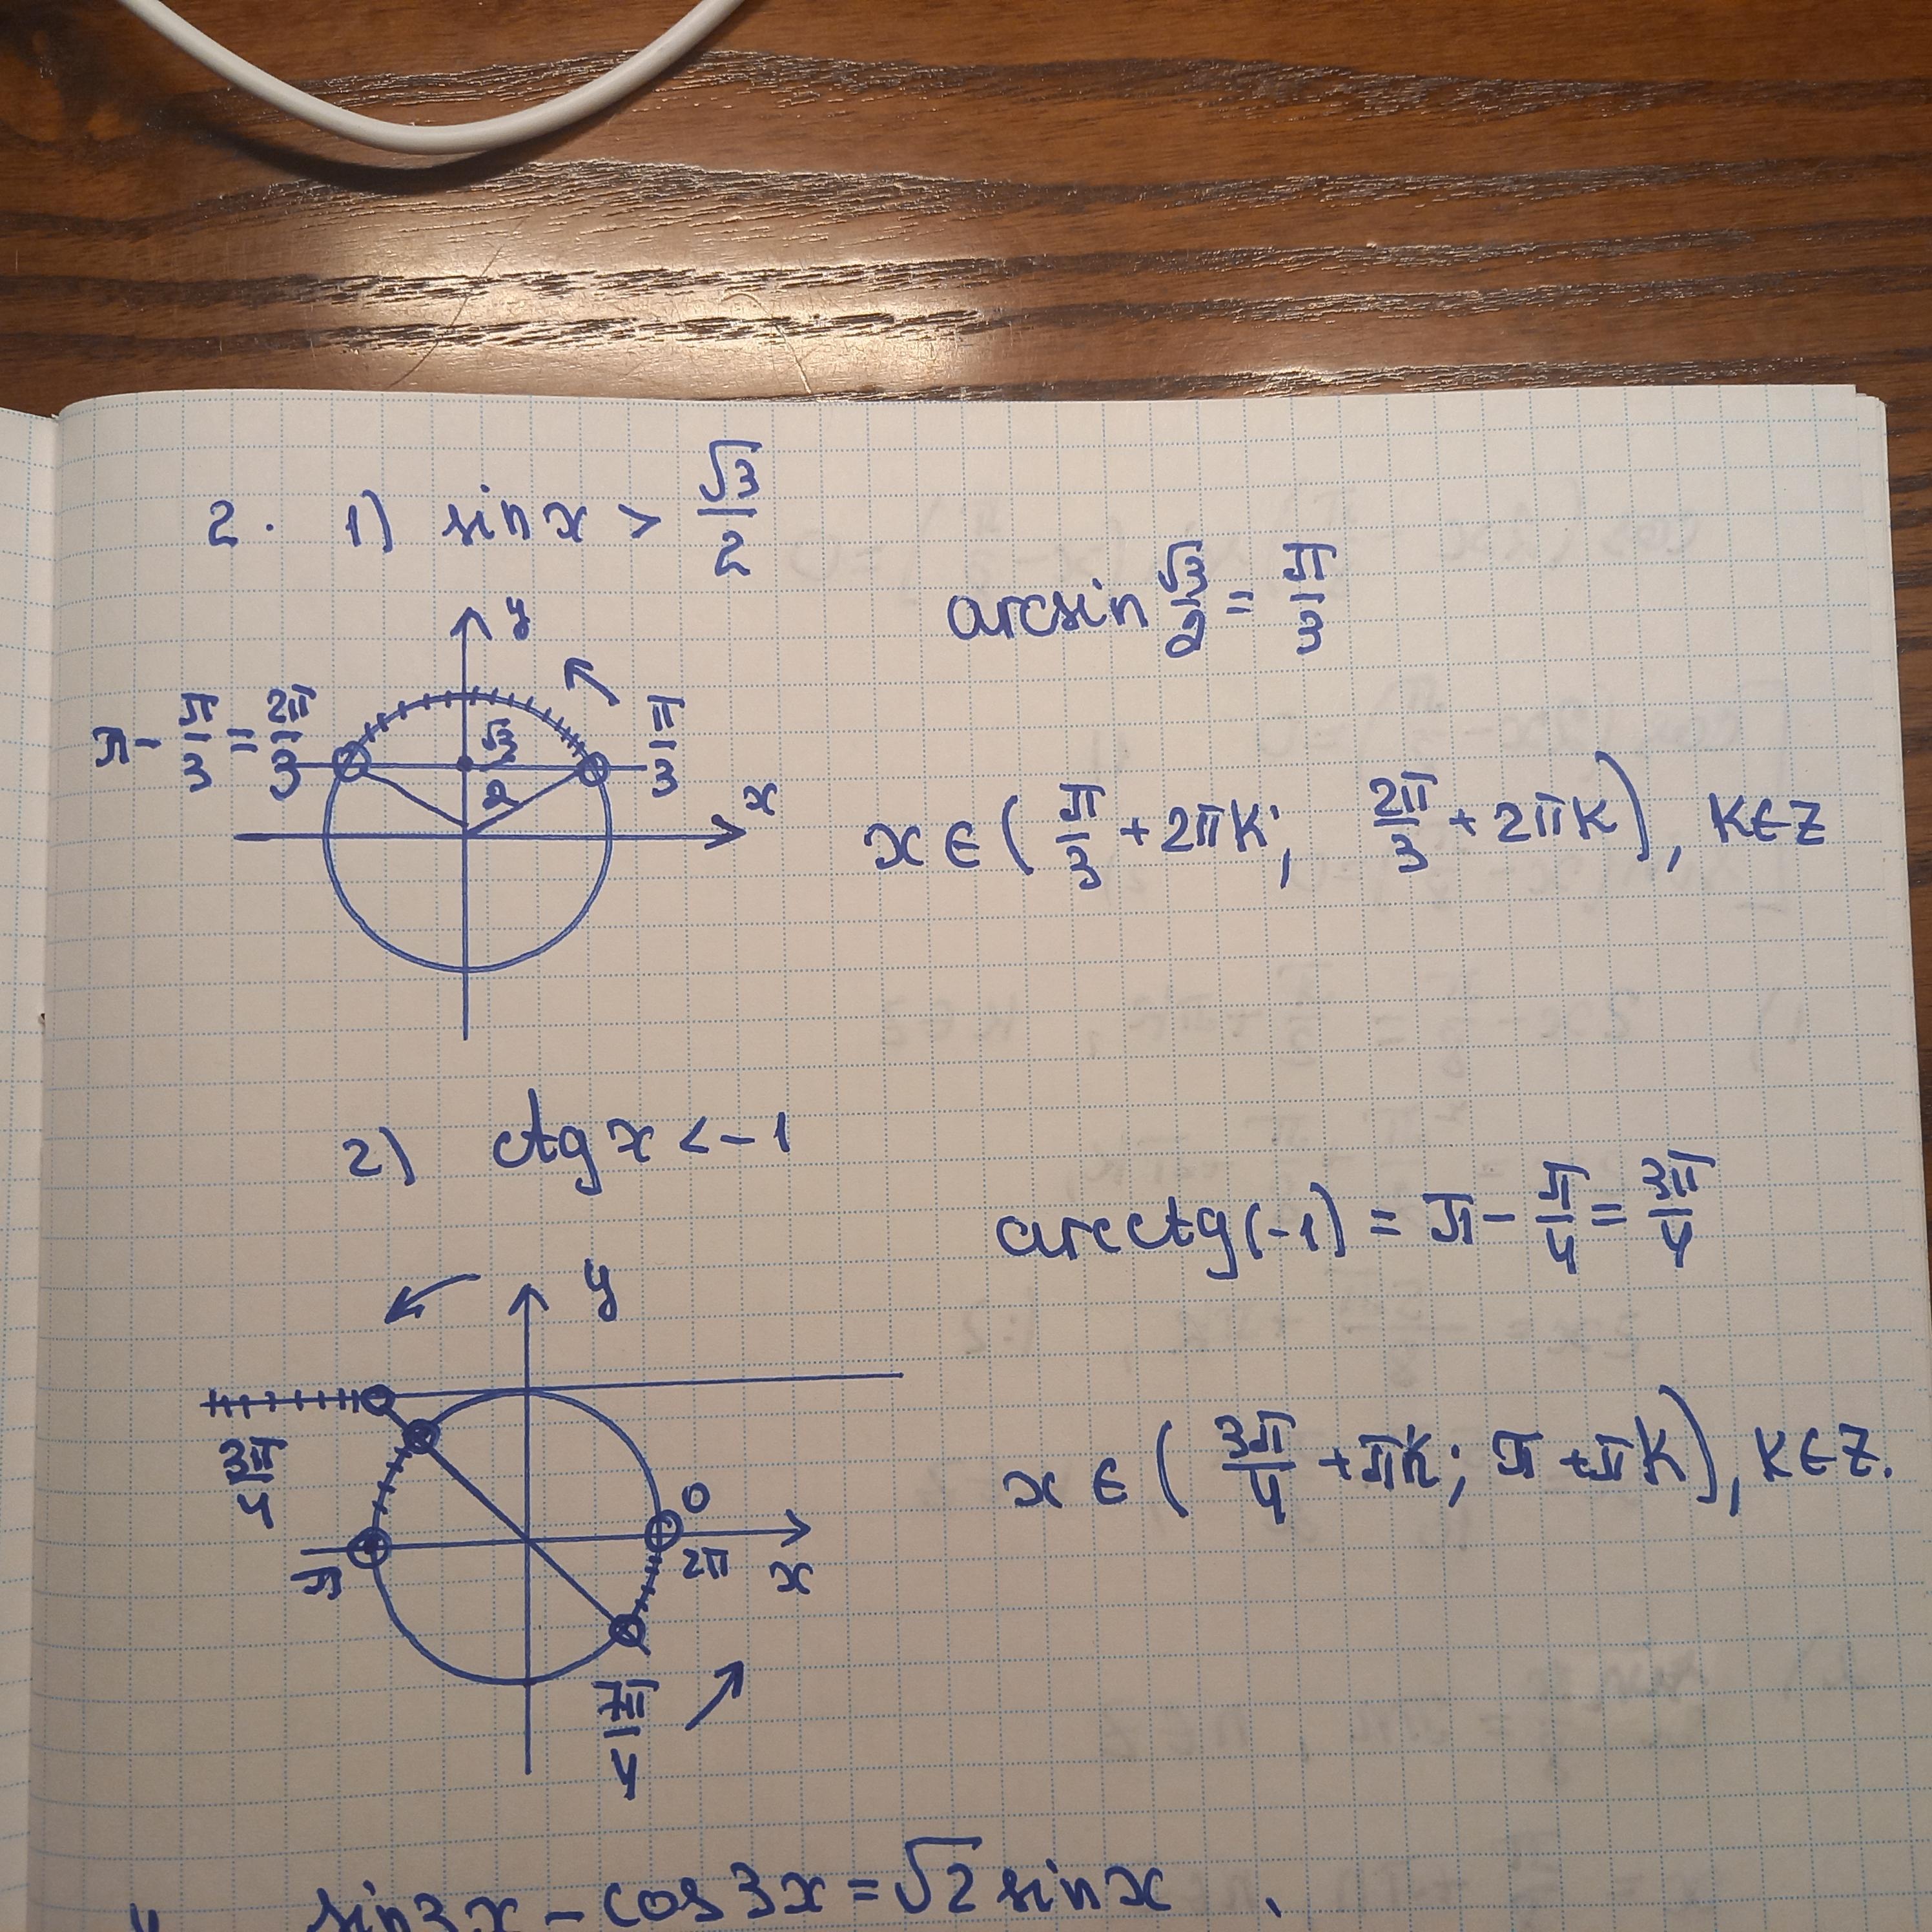 2. 1) sin x > √3/2
arcsin √3/2 = π/3
y
π - π/3 = 2π/3
√3/2
π/3
x
x ∈ (π/3 + 2πk; 2π/3 + 2πk), k∈Z
2) ctg x < -1
arcctg(-1) = π - π/4 = 3π/4
y
3π/4
x ∈ (3π/4 + πk; π + πk), k∈Z.
0
π
2π
x
7π/4
sin3x - cos3x = √2 sinx